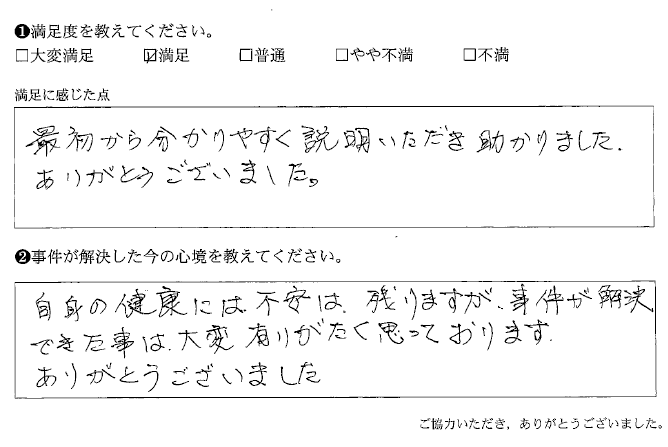 ❶満足度を教えてください。
□大変満足 ☑満足 □普通 □やや不満 □不満
満足に感じた点
最初から分かりやすく説明いただき助かりました.
ありがとうございました。
❷事件が解決した今の心境を教えてください。
自身の健康には不安は、残りますが、事件が解決
できた事は、大変有りがたく思っております.
ありがとうございました
ご協力いただき，ありがとうございました。